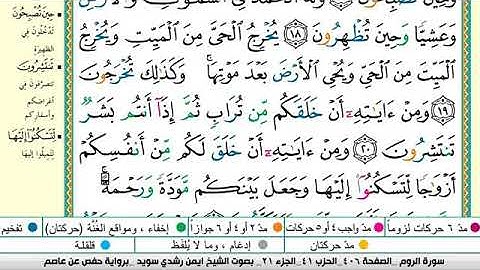 وَحِينَ تُصْبِحُونَ ١٧ وَلَهُ الْحَمْدُ فِي السَّمَٰوَٰتِ وَالْأَرْضِ
وَعَشِيًّا وَحِينَ تُظْهِرُونَ ١٨ يُخْرِجُ الْحَيَّ مِنَ الْمَيِّتِ وَيُخْرِجُ
الْمَيِّتَ مِنَ الْحَيِّ وَيُحْيِ الْأَرْضَ بَعْدَ مَوْتِهَا ۚ وَكَذَٰلِكَ تُخْرَجُونَ
١٩ وَمِنْ ءَايَٰتِهِۦٓ أَنْ خَلَقَكُم مِّن تُرَابٍ ثُمَّ إِذَآ أَنتُم بَشَرٌ
تَنتَشِرُونَ ٢٠ وَمِنْ ءَايَٰتِهِۦٓ أَنْ خَلَقَ لَكُم مِّنْ أَنفُسِكُمْ
أَزْوَٰجًا لِّتَسْكُنُوٓا۟ إِلَيْهَا وَجَعَلَ بَيْنَكُم مَّوَدَّةً وَرَحْمَةً ۚ
حِينَ تُصْبِحُونَ
تدخلون في
الظهيرة
تَنتَشِرُونَ
تتصرفون في
أغراضكم
وأسفاركم
لِّتَسْكُنُوٓا۟ إِلَيْهَا
لتميلوا إليها
مدّ ٦ حركات لزوماً
مدّ واجب ٤ أو ٥ حركات
مدّ ٢ أو ٤ أو ٦ جوازاً
إخفاء ، ومواقع الغُنَّة (حركتان)
تفخيم
مدّ حركتان
إدغام ، وما لا يُلفَظ
قلقلة
سورة الروم _ الصفحة ٤٠٦ _ الحزب ٤١ _ الجزء ٢١ _ بصوت الشيخ ايمن رشدي سويد _ برواية حفص عن عاصم